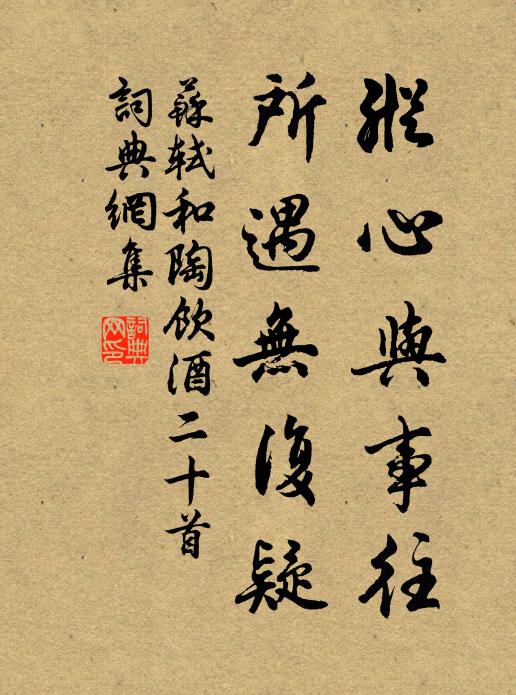 縱心與事往
所遇無復疑
蘇軾和陶飲酒二十首
詞典網集
詞典网印